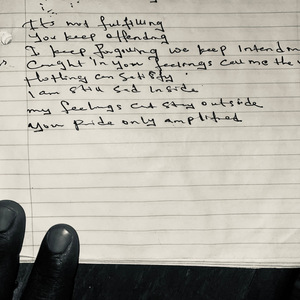 Its not fulfilling
You keep offending
I keep forgiving we keep
Caught in your feelings call me the
Nothing can satisfy
I am still sad Inside
my feelings cut stay outside
your pride only amplified